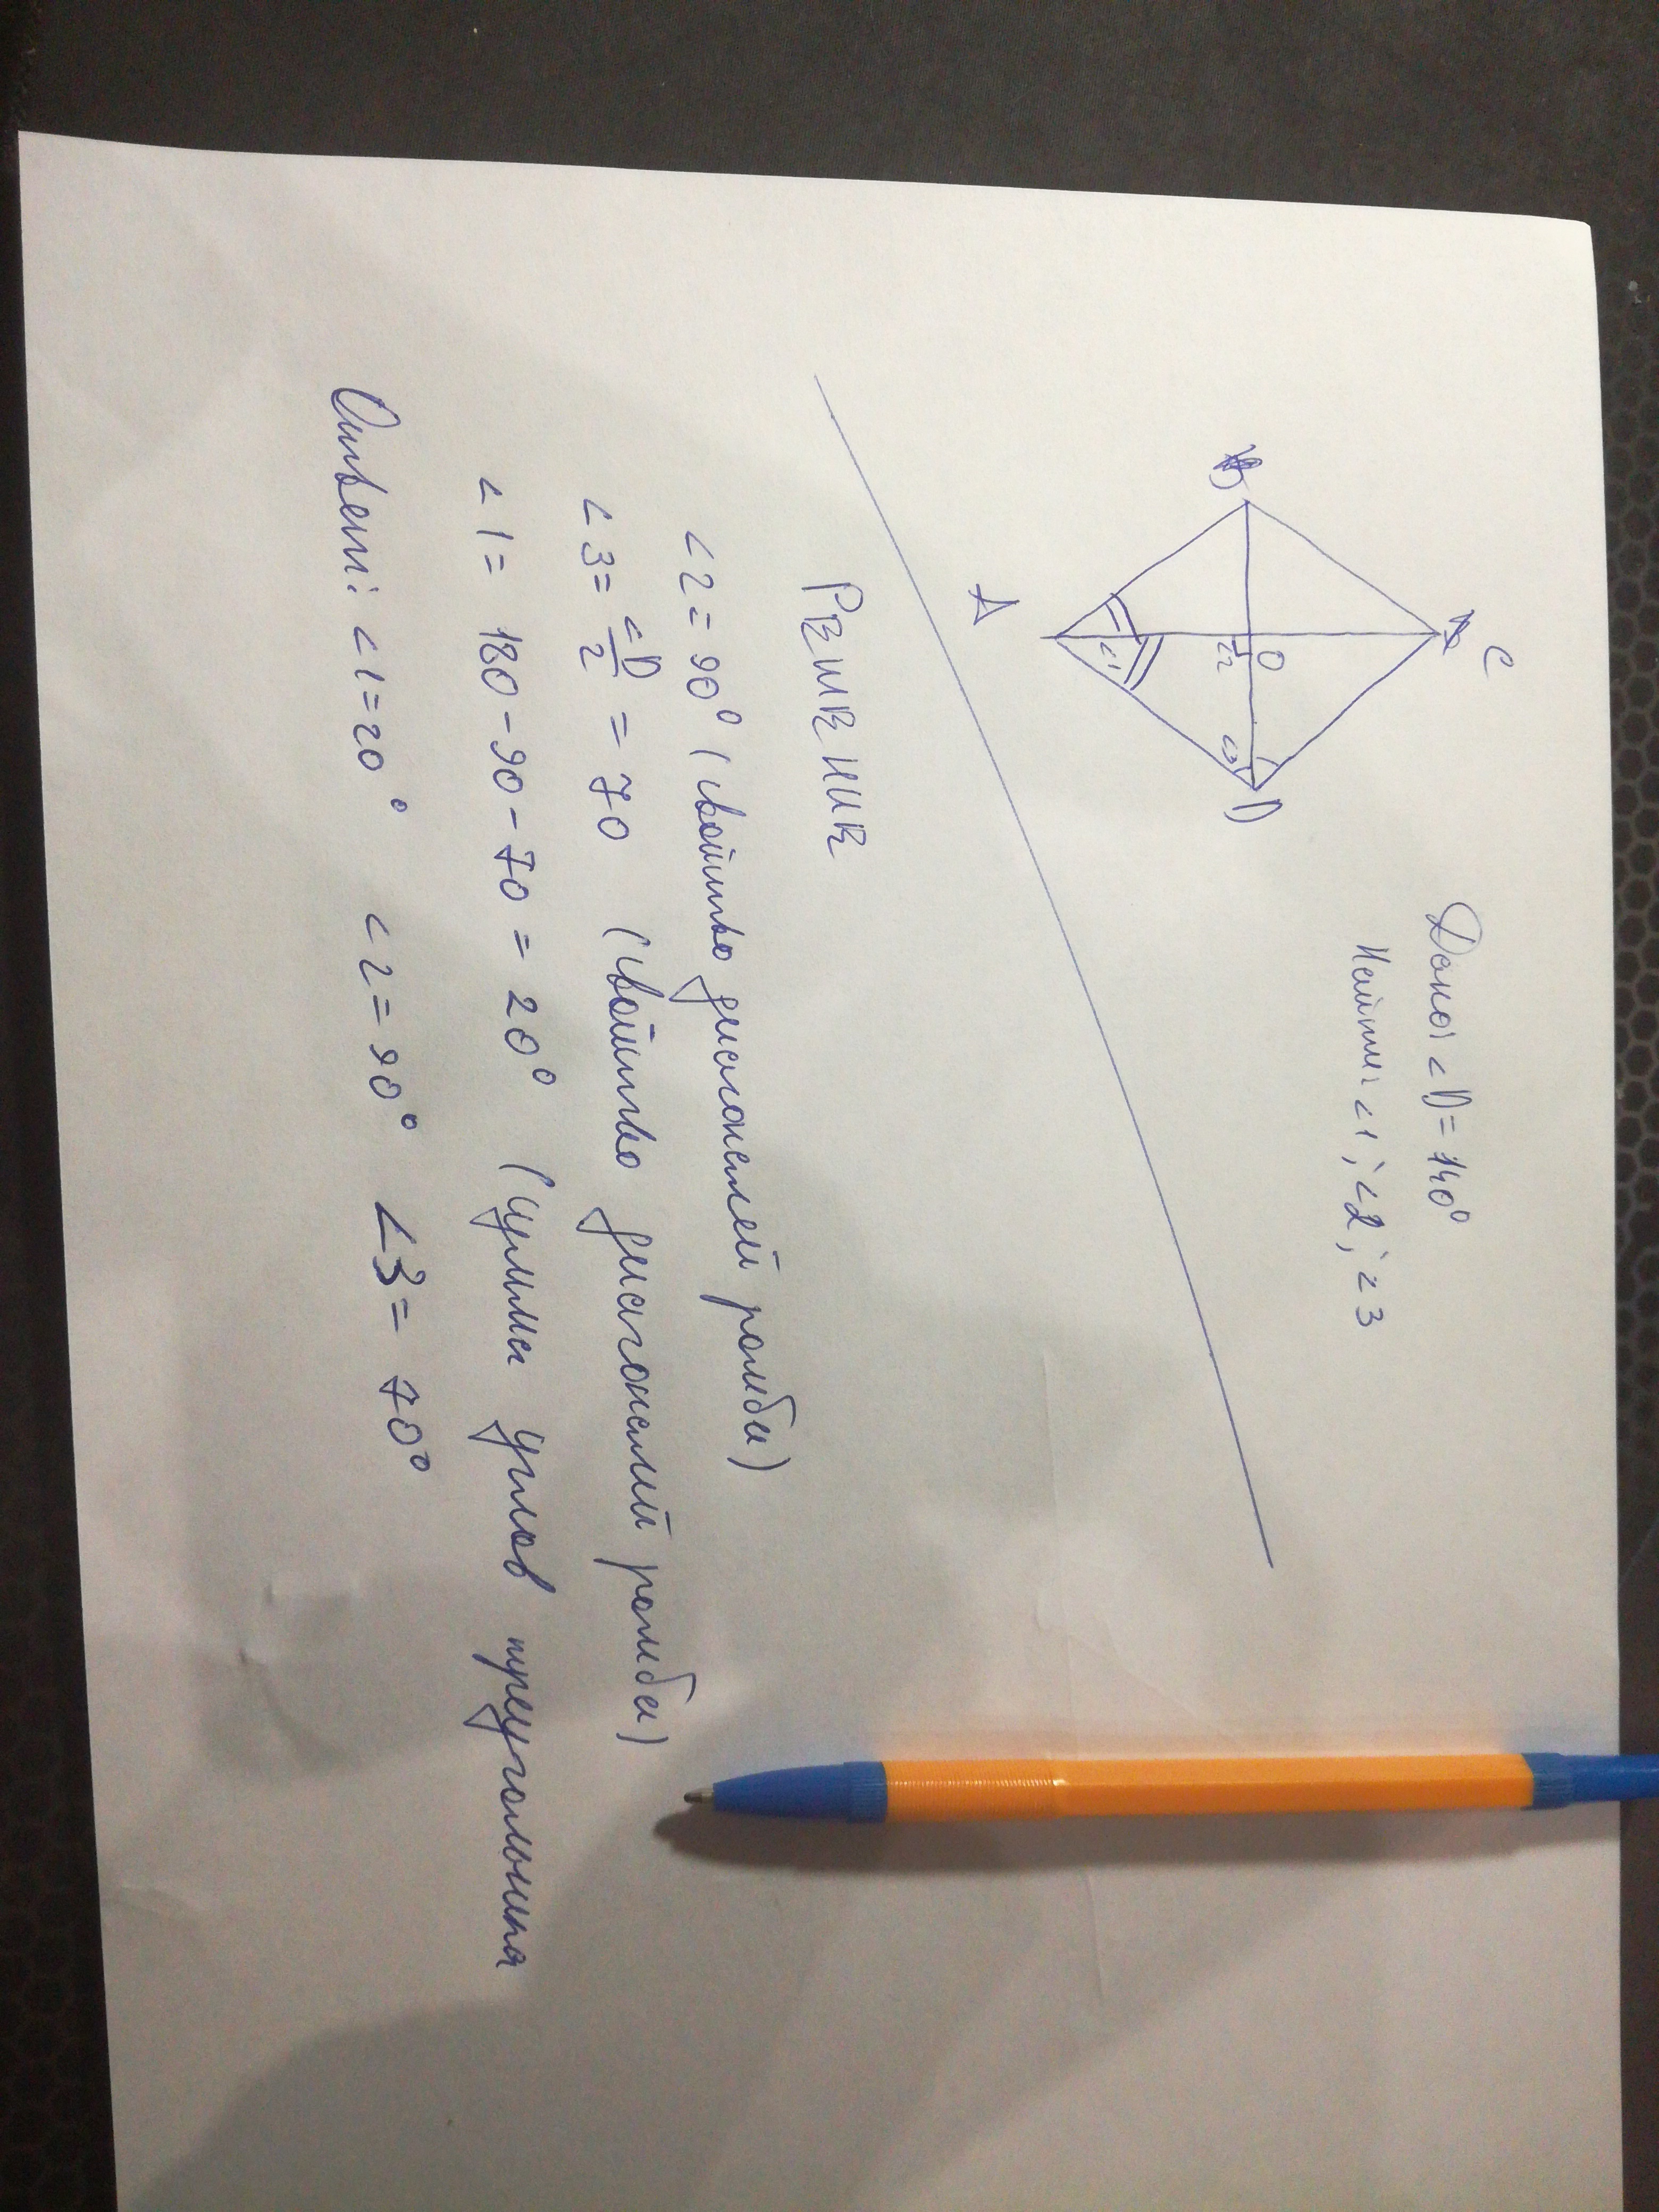 Дано: <D = 140°
Найти: <1; <2; <3
C
B
O
D
<2
<3
<1
A
Решение
<2 = 90° (свойство диагоналей ромба)
<3 = <D/2 = 70 (свойство диагоналей ромба)
<1 = 180 - 90 - 70 = 20° (сумма углов треугольника
Ответ: <1 = 20° <2 = 90° <3 = 70°